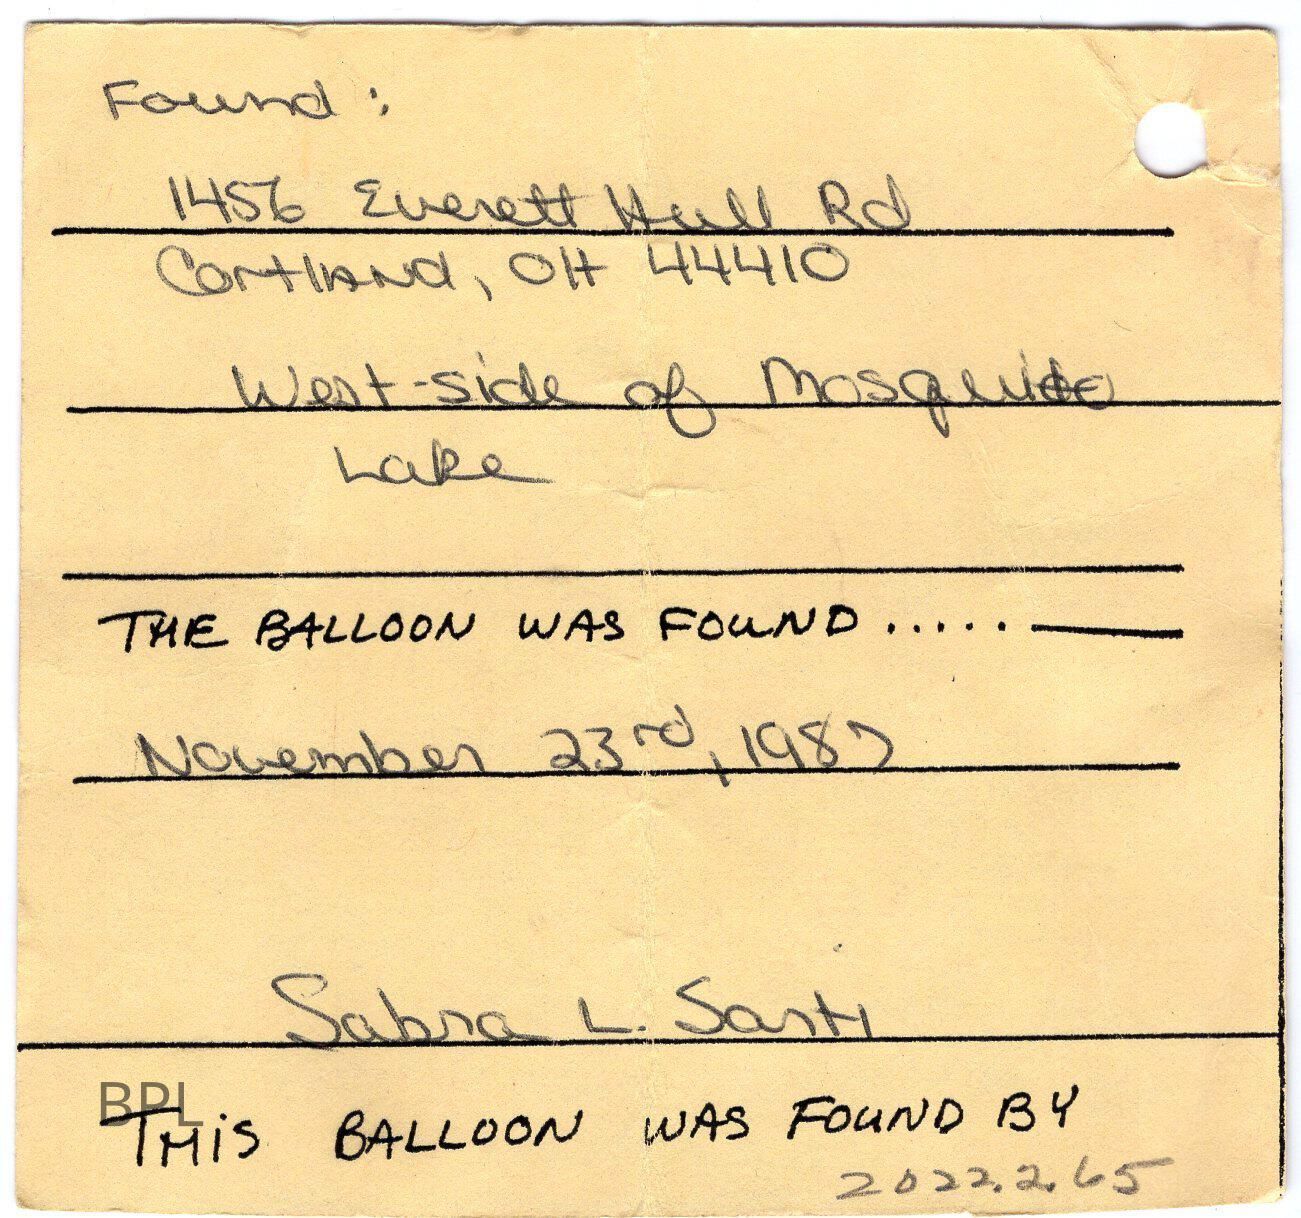 Found:
1456 Everett Hull Rd
Cortland, OH 44410
West-side of Mosquito
Lake
THE BALLOON WAS FOUND.....
November 23rd, 1987
Sabra L. Santi
BPL
THIS BALLOON WAS FOUND BY
2022.2.65